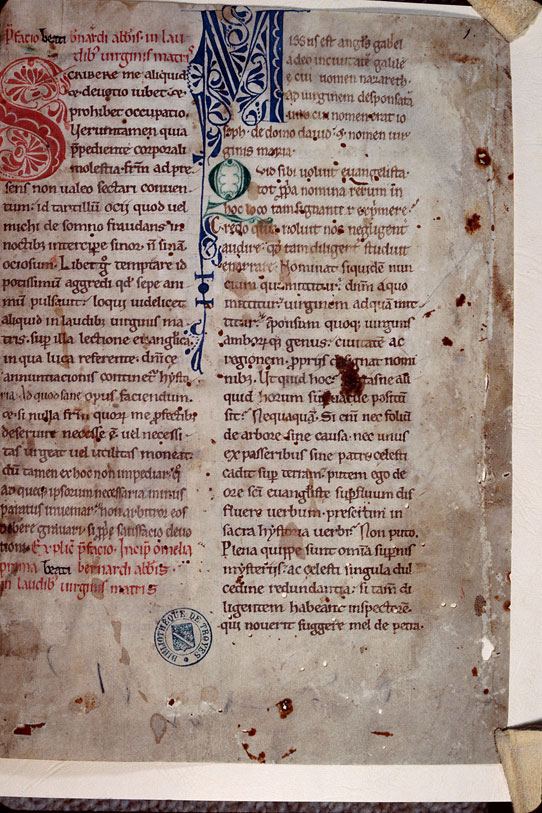 p̄facio beati b̄nardi abb̄is. in lau
dib; uirginis matris
SCRIBERE me aliquid
& deuotio iubet. &
prohibet occupatio.
Veruntamen quia
p̄pediente corporali
molestia. fr̄m ad pre
sens non ualeo sectari conuen
tum: id tantillū ocii quod uel
michi de somno fraudans in
noctib; intercipe sinor. n̄ sinā
ociosum. Libet g° temptare id
potissimū aggredi qd̄ sepe ani
mū pulsauit. loqui uidelicet
aliquid in laudib; uirginis ma
tris. sup illa lectione euanglica.
in qua luca referente. dn̄ice
annunciationis continet̄ hysto
ria. Ad quod sane opus faciendum.
& si nulla fr̄m quor̄ me p̄fectib;
deseruire necesse ē uel necessi
tas urgeat uel utilitas moneat.
dū tamen ex hoc non impediar. q°
ad queq; ipsorum necessaria minus
paratus inueniar. non arbitror eos
debere grauari. si p̄pe satisfacio deuo
tioni. Explic̄ p̄facio. Incip̄ omelia
prima beati bernardi abb̄is.
in laudib; uirginis matris
MISSUS est angl̄s gabriel
a deo in ciuitatē galilee
e cui nomen nazareth.
ad uirginem desponsatā
uiro cui nomen erat io
seph. de domo dauid. & nomen uir
ginis maria.
Quid sibi uoluit euangelista.
tot p̄pa nomina rerum in
hoc loco tam signant̄ exp̄mere.
Credo quia noluit nos negligent̄
audire. qd̄ tam diligent̄ studuit
enarrare. Nominat siquidē nun
cium qui mittitur. dn̄m a quo
mittitur. uirginem ad quā mit
titur. sponsum quoq; uirginis
amborq; genus. ciuitatē ac
regionem. propriis designat nomi
nib;. Ut quid hoc. Putasne ali
quid horum superuacue positū
sit. Nequaquā. Si enī nec foliū
de arbore sine causa. nec unus
ex passeribus sine patre celesti
cadit sup terram. putem ego de
ore sc̄i euangliste supfluum dif
fluere uerbum. presertim in
sacra hystoria uerbi. Non puto.
Plena quippe sunt omīa supnis
mysteriis. ac celesti singula dul
cedine redundantia. si tam̄ di
ligentem habeant inspectorē.
qui nouerit suggere mel de petra.
BIBLIOTHÈQUE DE TROYES